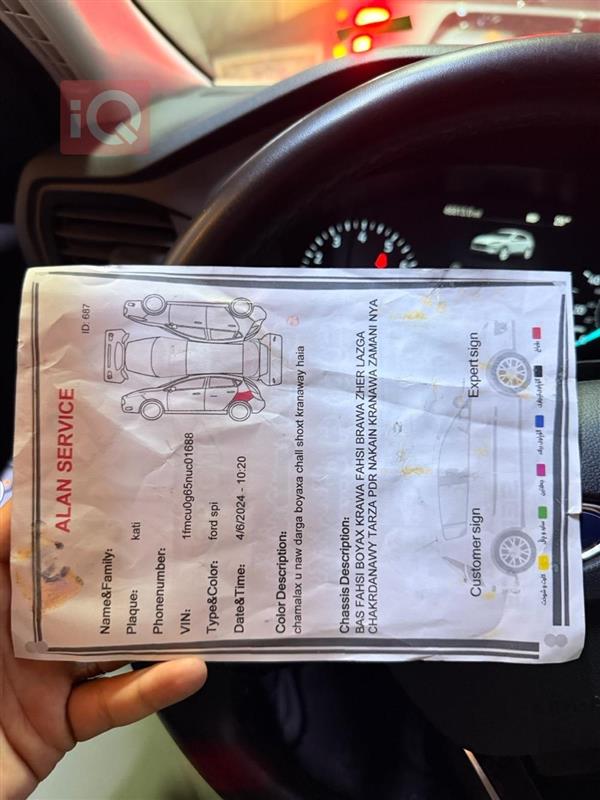 iQ
ALAN SERVICE
ID: 687
Name&Family:
Plaque: kati
Phonenumber:
VIN: 1fmcu0g65nuc01688
Type&Color: ford spi
Date&Time: 4/6/2024 - 10:20
Color Description:
chamalax u naw darga boyaxa chall shoxt kranaway haia
Chassis Description:
BAS FAHSI BOYAX KRAWA FAHSI BRAWA ZHER LAZGA
CHAKRDANAWY TARZA PDR NAKAIN KRANAWA ZAMANI NYA
Customer sign
Expert sign
2
3
4
5
6